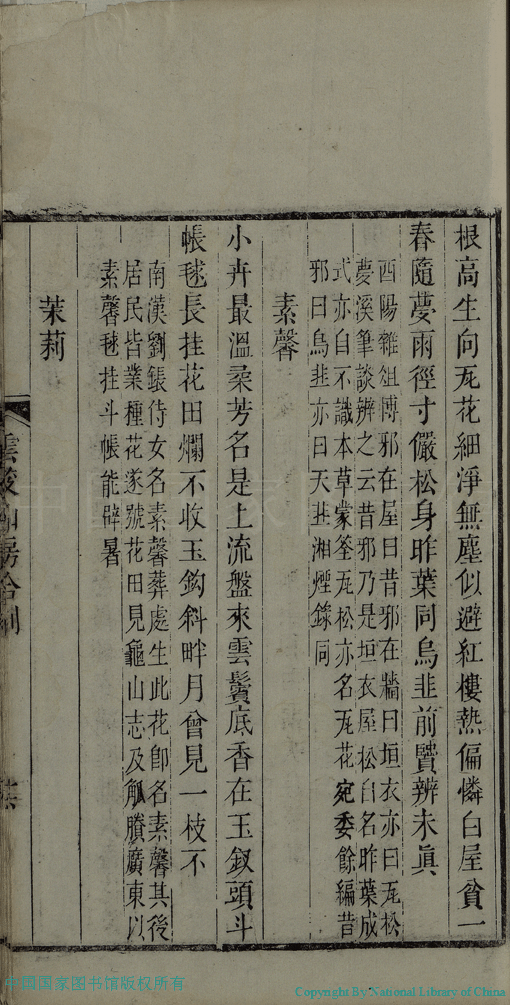 根高生向瓦花細淨無塵似避紅樓熱偏憐白屋貧一
春隨夢雨徑寸儼松身昨葉同烏韭前賢辨未眞
酉陽雜俎博邪在屋曰昔邪在牆曰垣衣亦曰瓦松
夢溪筆談辨之云昔邪乃是垣衣屋松自名昨葉成
式亦自不識本草蒙筌瓦松亦名瓦花宛委餘編昔
邪曰烏韭亦曰天韭湘煙錄同
素馨
小卉最溫柔芳名是上流盤來雲鬢底香在玉釵頭斗
帳毬長挂花田爛不收玉鈎斜畔月曾見一枝不
南漢劉鋹侍女名素馨葬處生此花卽名素馨其後
居民皆業種花遂號花田見龜山志及觚賸廣東以
素馨毬挂斗帳能辟暑
茉莉
中国国家图书馆版权所有
Copyright By National Library of China